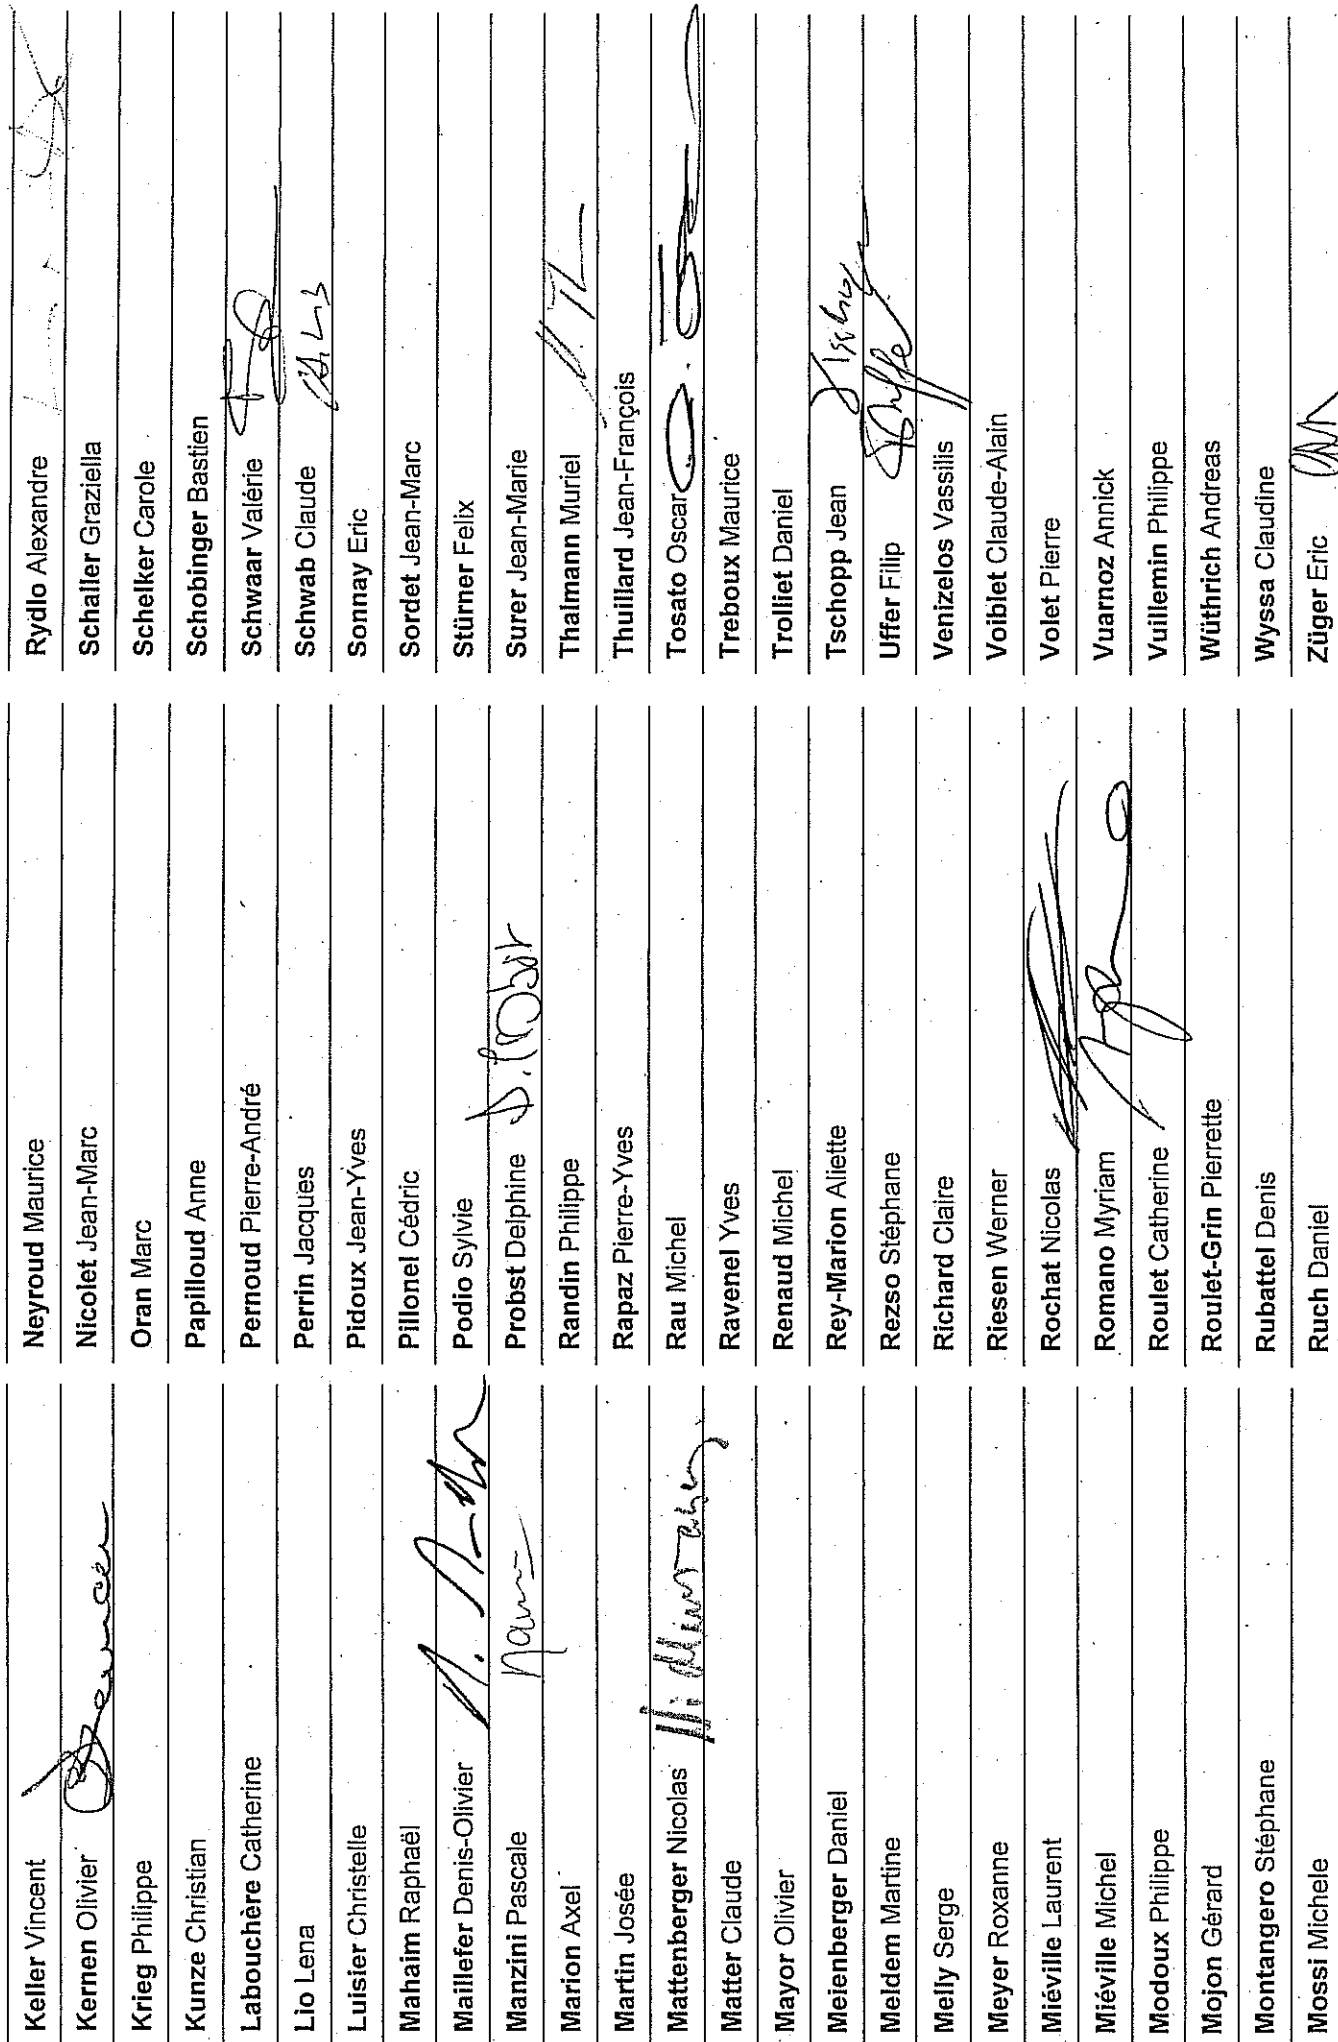 Keller Vincent
Kernen Olivier
Krieg Philippe
Kunze Christian
Labouchère Catherine
Lio Lena
Luisier Christelle
Mahaim Raphaël
Maillefer Denis-Olivier
Manzini Pascale
Marion Axel
Martin Josée
Mattenberger Nicolas
Matter Claude
Mayor Olivier
Meienberger Daniel
Meldem Martine
Melly Serge
Meyer Roxanne
Miéville Laurent
Miéville Michel
Modoux Philippe
Mojon Gérard
Montangero Stéphane
Mossi Michele
Neyroud Maurice
Nicolet Jean-Marc
Oran Marc
Papilloud Anne
Pernoud Pierre-André
Perrin Jacques
Pidoux Jean-Yves
Pillonel Cédric
Podio Sylvie
Probst Delphine D. Probst
Randin Philippe
Rapaz Pierre-Yves
Rau Michel
Ravenel Yves
Renaud Michel
Rey-Marion Aliette
Rezso Stéphane
Richard Claire
Riesen Werner
Rochat Nicolas
Romano Myriam
Roulet Catherine
Roulet-Grin Pierrette
Rubattel Denis
Ruch Daniel
Rydlo Alexandre
Schaller Graziella
Schelker Carole
Schobinger Bastien
Schwaar Valérie
Schwab Claude
Sonnay Eric
Sordet Jean-Marc
Stürner Felix
Surer Jean-Marie
Thalmann Muriel
Thuillard Jean-François
Tosato Oscar
Treboux Maurice
Trolliet Daniel
Tschopp Jean
Uffer Filip
Venizelos Vassilis
Voiblet Claude-Alain
Volet Pierre
Vuarnoz Annick
Vuillemin Philippe
Wüthrich Andreas
Wyssa Claudine
Züger Eric